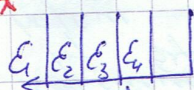 ε₁ ε₂ ε₃ ε₄